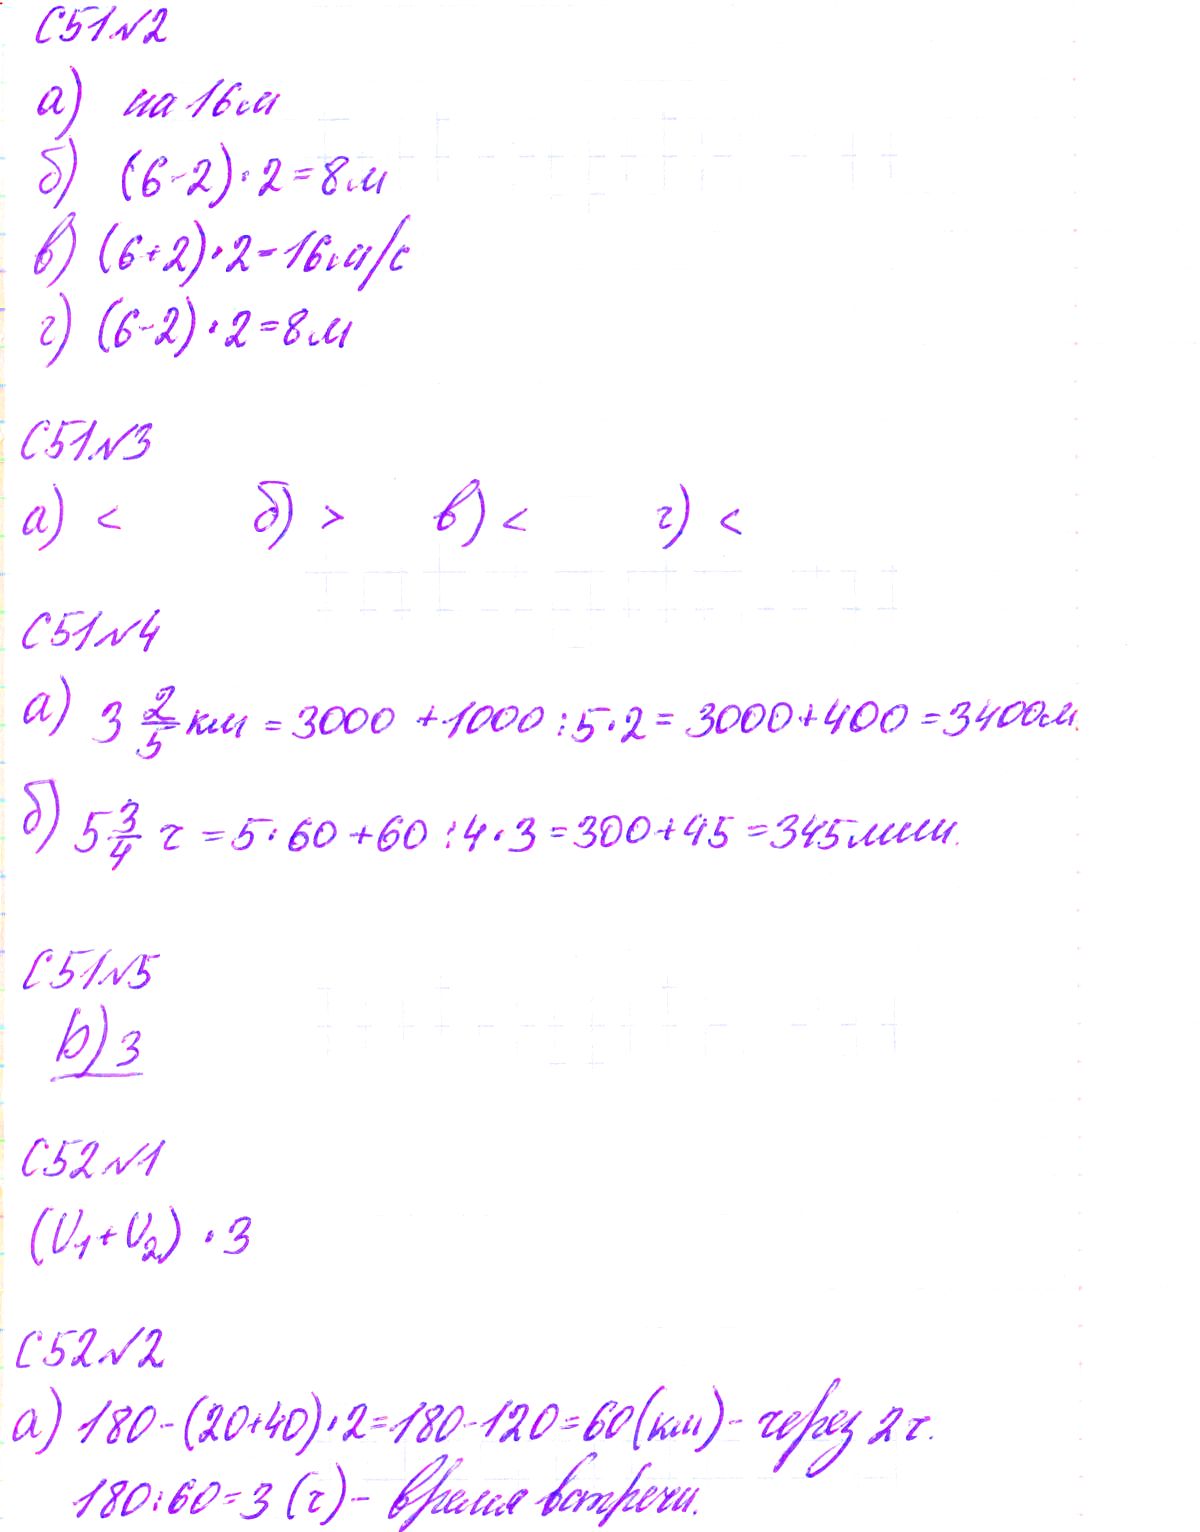 С51№2
а) на 16м
б) (6-2)·2=8м
в) (6+2)·2=16м/с
г) (6-2)·2=8м
С51№3
а) < б) > в) < г) <
С51№4
а) 3 2/5 км = 3000 +1000 :5·2 = 3000+400 = 3400м.
б) 5 3/4 ч = 5·60 +60 :4·3 = 300+45 = 345мин.
С51№5
b) 3
С52№1
(V₁+V₂) ·3
С52№2
а) 180-(20+40)·2=180-120=60(км)- через 2ч.
180:60=3 (ч)- время встречи.